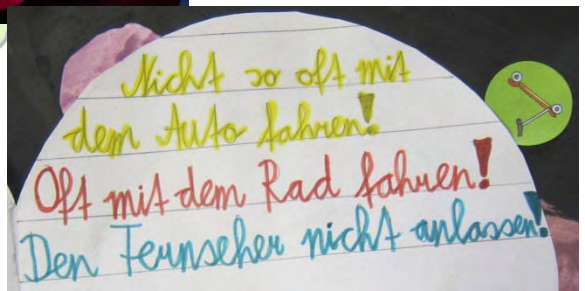 Nicht so oft mit
dem Auto fahren!
Oft mit dem Rad fahren!
Den Fernseher nicht anlassen!